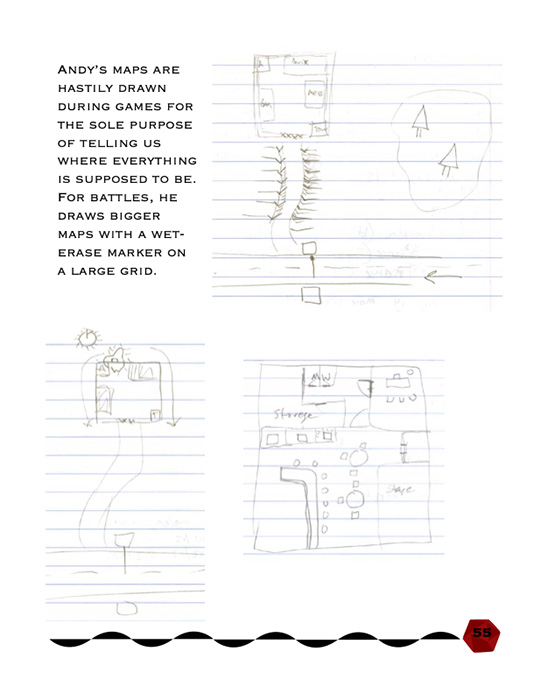 ANDY'S MAPS ARE
HASTILY DRAWN
DURING GAMES FOR
THE SOLE PURPOSE
OF TELLING US
WHERE EVERYTHING
IS SUPPOSED TO BE.
FOR BATTLES, HE
DRAWS BIGGER
MAPS WITH A WET-
ERASE MARKER ON
A LARGE GRID.
MW
Storage
Stage
55